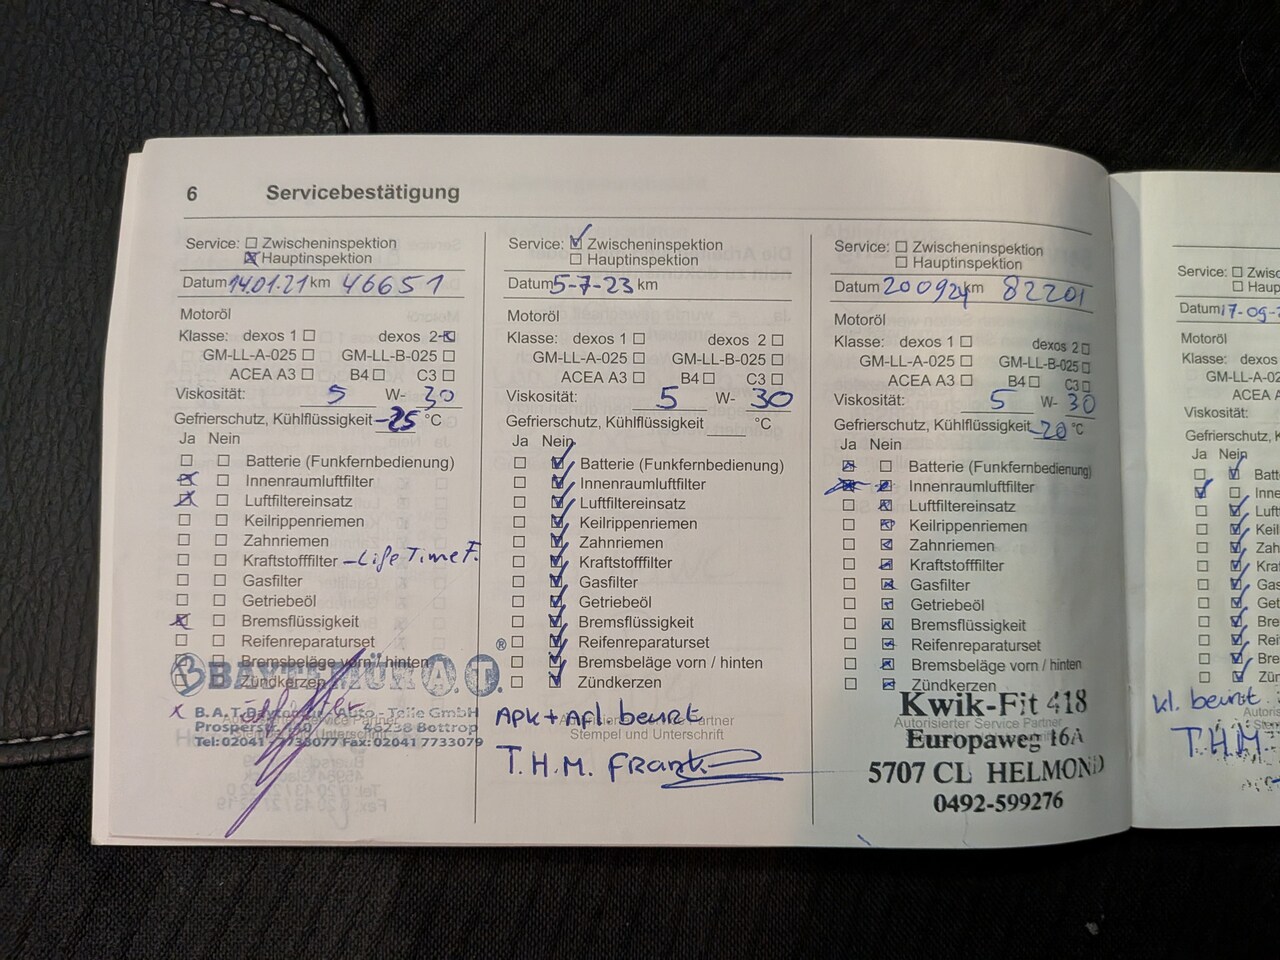 6 Servicebestätigung
Service: Zwischeninspektion
Hauptinspektion
Datum 14.01.21 km 46651
Motoröl
Klasse: dexos 1 dexos 2
GM-LL-A-025 GM-LL-B-025
ACEA A3 B4 C3
Viskosität: 5 W- 30
Gefrierschutz, Kühlflüssigkeit -25 °C
Ja Nein
Batterie (Funkfernbedienung)
Innenraumluftfilter
Luftfiltereinsatz
Keilrippenriemen
Zahnriemen
Kraftstofffilter - LifeTime F.
Gasfilter
Getriebeöl
Bremsflüssigkeit
Reifenreparaturset
Bremsbeläge vorn / hinten
Zündkerzen
A.T.®
B.A.T. Auto - Teile GmbH
46238 Bottrop
Tel: 02041 7733077 Fax: 02041 7733079
Service: Zwischeninspektion
Hauptinspektion
Datum 5-7-23 km
Motoröl
Klasse: dexos 1 dexos 2
GM-LL-A-025 GM-LL-B-025
ACEA A3 B4 C3
Viskosität: 5 W- 30
Gefrierschutz, Kühlflüssigkeit °C
Ja Nein
Batterie (Funkfernbedienung)
Innenraumluftfilter
Luftfiltereinsatz
Keilrippenriemen
Zahnriemen
Kraftstofffilter
Gasfilter
Getriebeöl
Bremsflüssigkeit
Reifenreparaturset
Bremsbeläge vorn / hinten
Zündkerzen
APK + Afl. beurt
Stempel und Unterschrift
T.H.M. Frank
Service: Zwischeninspektion
Hauptinspektion
Datum 200924 km 82201
Motoröl
Klasse: dexos 1 dexos 2
GM-LL-A-025 GM-LL-B-025
ACEA A3 B4 C3
Viskosität: 5 W- 30
Gefrierschutz, Kühlflüssigkeit -20 °C
Ja Nein
Batterie (Funkfernbedienung)
Innenraumluftfilter
Luftfiltereinsatz
Keilrippenriemen
Zahnriemen
Kraftstofffilter
Gasfilter
Getriebeöl
Bremsflüssigkeit
Reifenreparaturset
Bremsbeläge vorn / hinten
Zündkerzen
Kwik-Fit 418
Autorisierter Service Partner
Europaweg 16A
5707 CL HELMOND
0492-599276
Service: Zwisc
Haup
Datum 17-09-2
Motoröl
Klasse: dexos
GM-LL-A-02
ACEA A
Viskosität:
Gefrierschutz, K
Ja Nein
Batt
Inne
Luft
Keil
Zah
Kra
Gas
Get
Bre
Rei
Bre
Zün
kl. beurt
T.H.M.